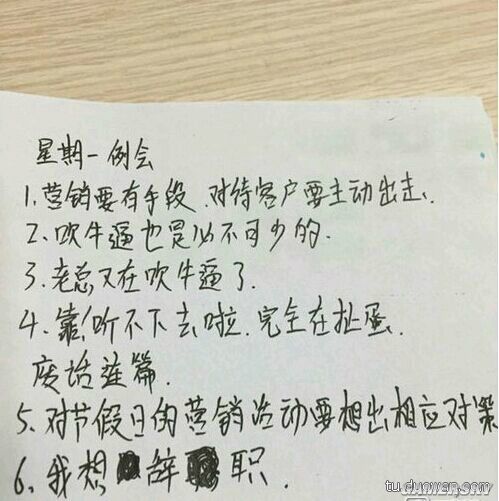 星期一例会
1.营销要有手段.对待客户要主动出击.
2.吹牛逼也是必不可少的.
3.老总又在吹牛逼了.
4.靠!听不下去啦.完全在扯蛋.
废话连篇.
5.对节假日的营销活动要想出相应对策
6.我想辞职.
tu.duowan.com